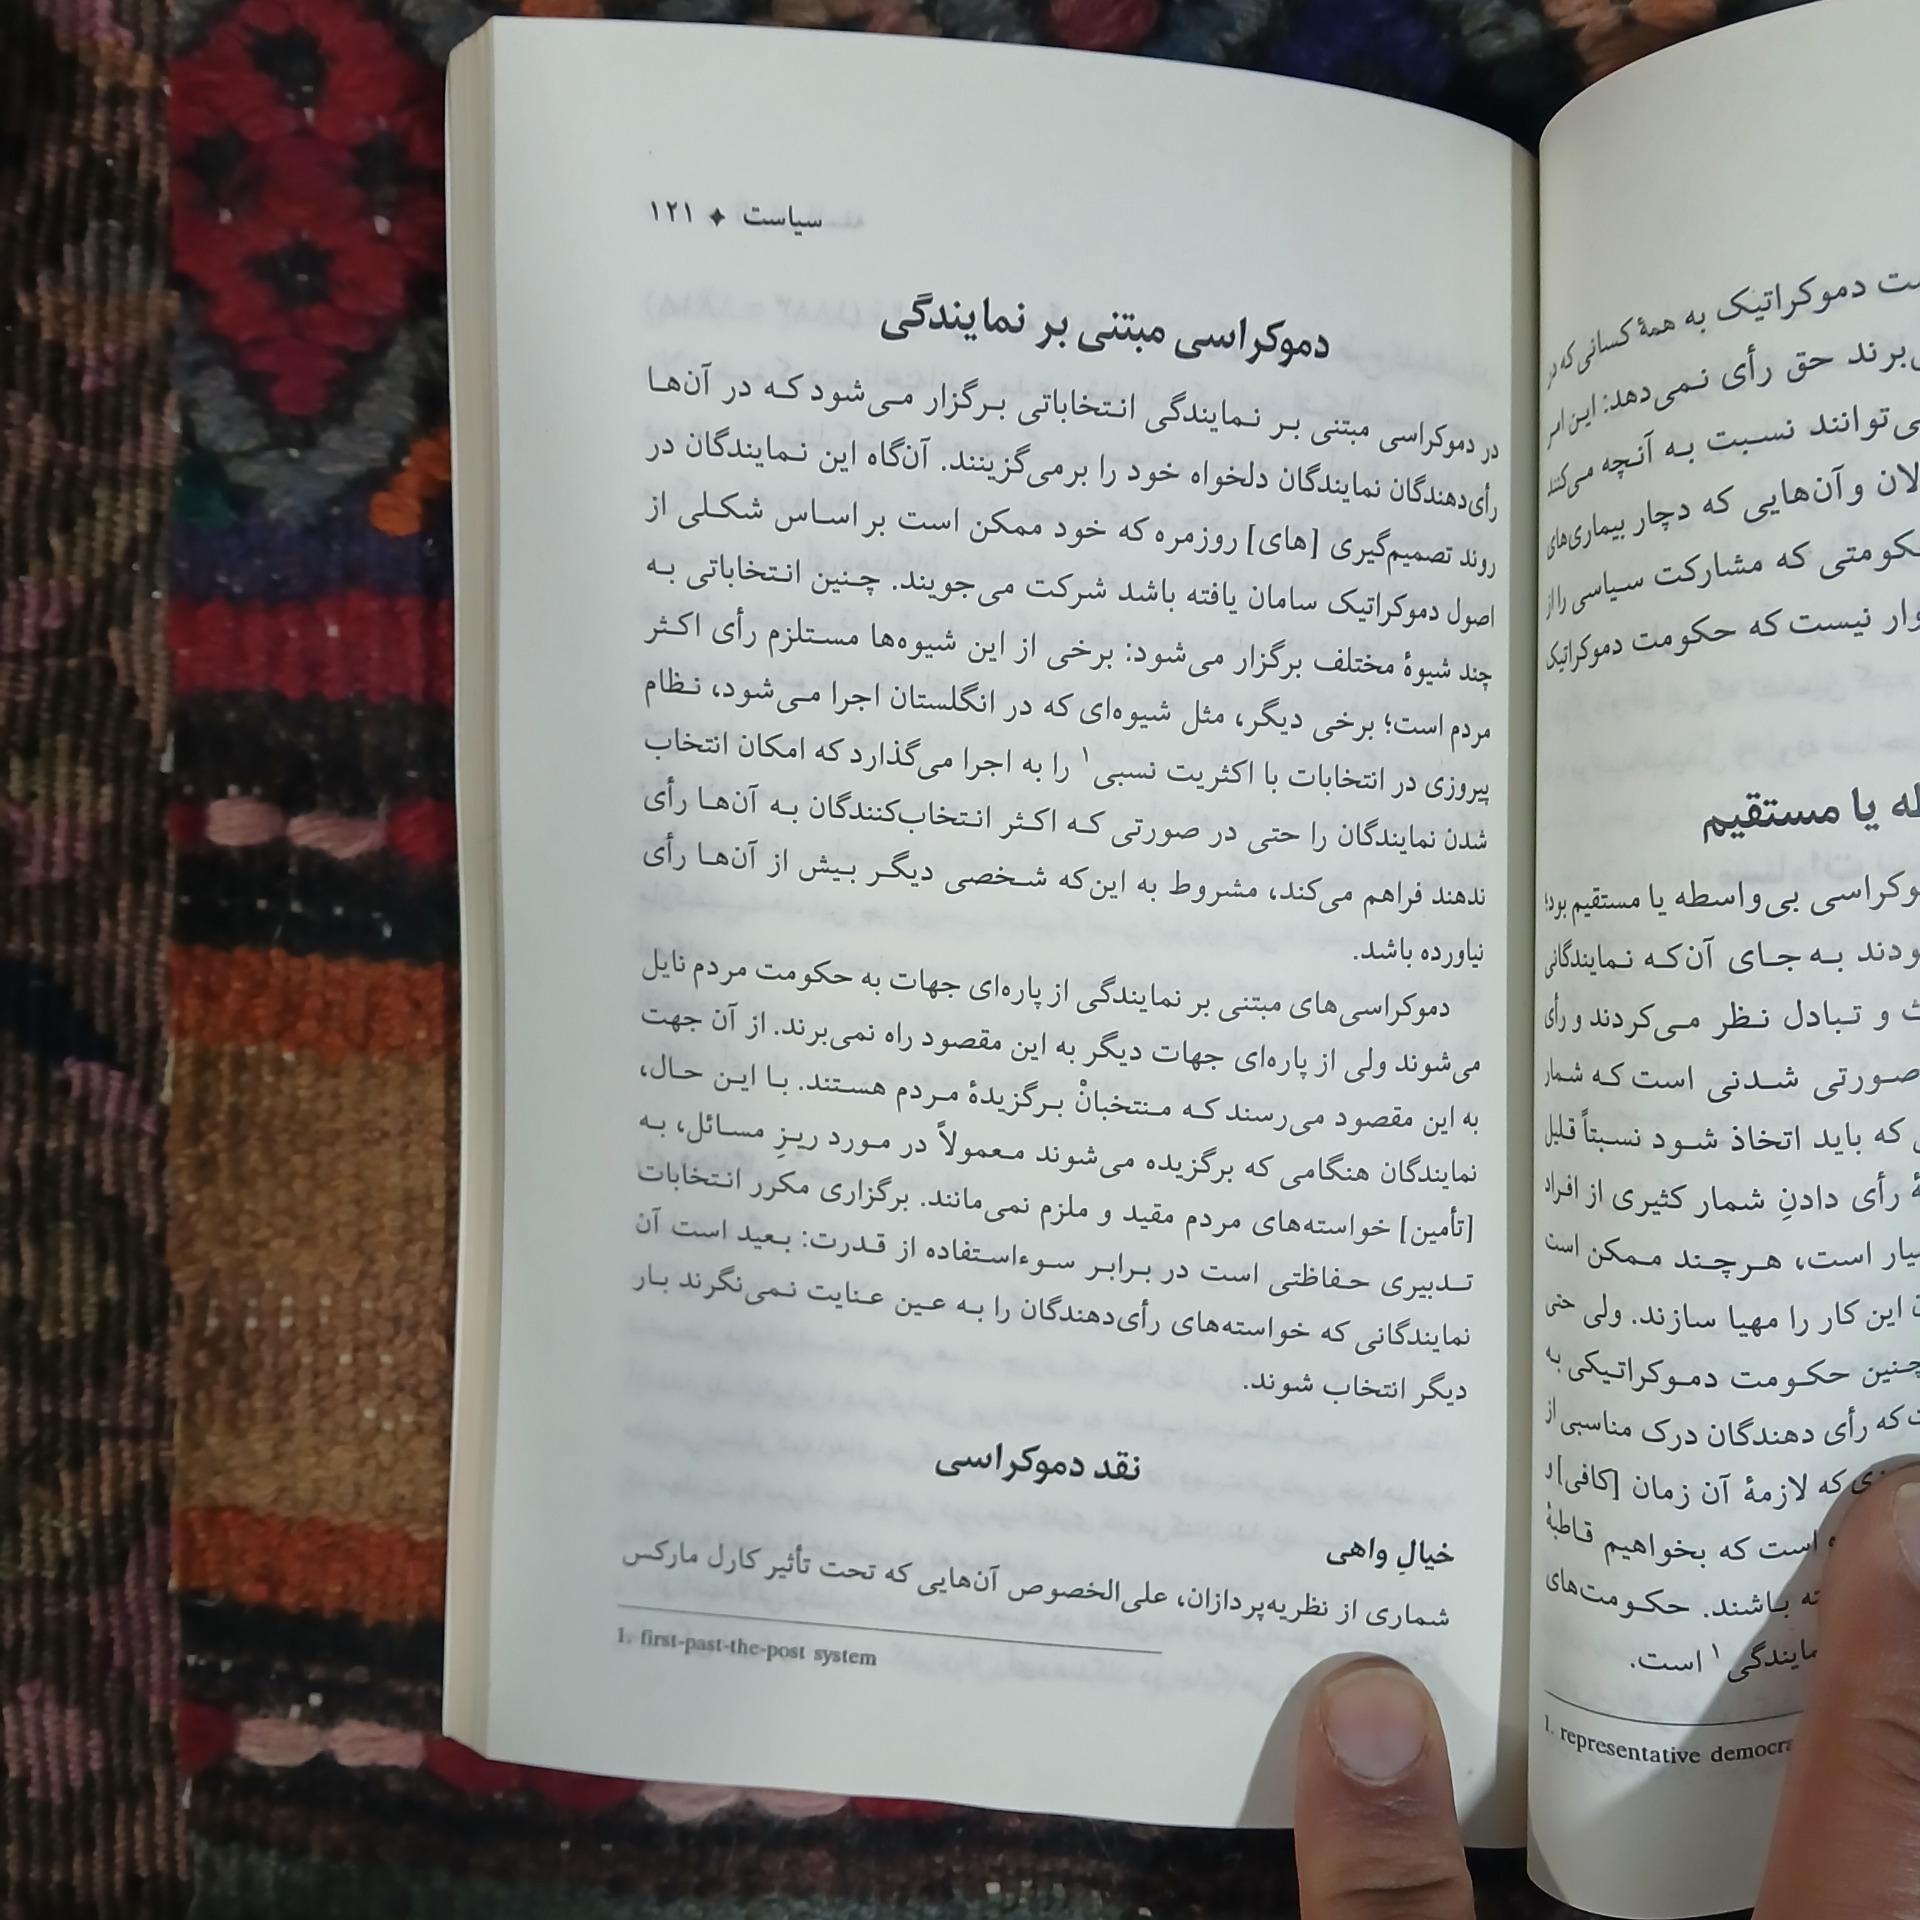 سیاست ✦ ۱۲۱
دموکراسی مبتنی بر نمایندگی
در دموکراسی مبتنی بر نمایندگی انتخاباتی برگزار می‌شود که در آن‌ها
رأی‌دهندگان نمایندگان دلخواه خود را برمی‌گزینند. آن‌گاه این نمایندگان در
روند تصمیم‌گیری [های] روزمره که خود ممکن است بر اساس شکلی از
اصول دموکراتیک سامان یافته باشد شرکت می‌جویند. چنین انتخاباتی به
چند شیوهٔ مختلف برگزار می‌شود: برخی از این شیوه‌ها مستلزم رأی اکثر
مردم است؛ برخی دیگر، مثل شیوه‌ای که در انگلستان اجرا می‌شود، نظام
پیروزی در انتخابات با اکثریت نسبی۱ را به اجرا می‌گذارد که امکان انتخاب
شدن نمایندگان را حتی در صورتی که اکثر انتخاب‌کنندگان به آن‌ها رأی
ندهند فراهم می‌کند، مشروط به این‌که شخصی دیگر بیش از آن‌ها رأی
نیاورده باشد.
دموکراسی‌های مبتنی بر نمایندگی از پاره‌ای جهات به حکومت مردم نایل
می‌شوند ولی از پاره‌ای جهات دیگر به این مقصود راه نمی‌برند. از آن جهت
به این مقصود می‌رسند که منتخبانْ برگزیدهٔ مردم هستند. با این حال،
نمایندگان هنگامی که برگزیده می‌شوند معمولاً در مورد ریزِ مسائل، به
[تأمین] خواسته‌های مردم مقید و ملزم نمی‌مانند. برگزاری مکرر انتخابات
تدبیری حفاظتی است در برابر سوءاستفاده از قدرت: بعید است آن
نمایندگانی که خواسته‌های رأی‌دهندگان را به عین عنایت نمی‌نگرند بار
دیگر انتخاب شوند.
نقد دموکراسی
خیالِ واهی
شماری از نظریه‌پردازان، علی‌الخصوص آن‌هایی که تحت تأثیر کارل مارکس
1. first-past-the-post system
دموکراتیک به همهٔ کسانی که در
برند حق رأی نمی‌دهد: این امر
توانند نسبت به آنچه می‌کنند
و آن‌هایی که دچار بیماری‌های
که مشارکت سیاسی را از
نیست که حکومت دموکراتیک
یا مستقیم
بی‌واسطه یا مستقیم بود؛
به جای آن‌که نمایندگانی
و تبادل نظر می‌کردند و رأی
صورتی شدنی است که شمار
که باید اتخاذ شود نسبتاً قلیل
رأی دادنِ شمار کثیری از افراد
است، هرچند ممکن است
این کار را مهیا سازند. ولی حتی
چنین حکومت دموکراتیکی به
که رأی دهندگان درک مناسبی از
که لازمهٔ آن زمان [کافی] و
است که بخواهیم قاطبهٔ
باشند. حکومت‌های
نمایندگی۱ است.
1. representative